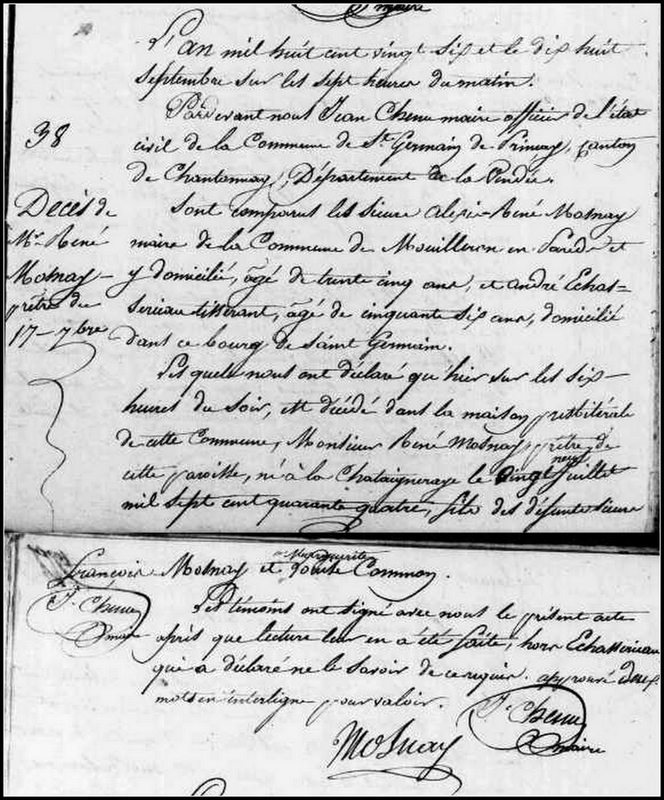 maire
L'an mil huit cent vingt six et le dix huit
septembre sur les sept heures du matin.
Pardevant nous Jean Chenu maire officier de l'état
38
civil de la Commune de St Germain de Prinçay, canton
de Chantonnay, Département de la Vendée.
Décès de
Mr René
Mosnay
prêtre du
17 7bre
Sont comparus les sieurs alexis-René Mosnay
maire de la Commune de Mouilleron en Pareds et
y domicilié, âgé de trente cinq ans, et andré Echas=
seriau tisserant, âgé de cinquante six ans, domicilié
dans ce bourg de Saint Germain.
Les quels nous ont déclaré qu'hier sur les six
heures du soir, est décédé dans la maison presbitérale
de cette Commune, Monsieur René Mosnay prêtre de
neuf
cette paroisse, né à la Chataigneraye le vingt juillet
mil sept cent quarante quatre, fils des défunts sieurs
Marguerite
François Mosnay et Common.
J. Chenu
maire
Les témoins ont signé avec nous le présent acte
après que lecture leur en a été faite, hors Echasseriau
qui a déclaré ne le savoir de ce requis. approuvé deux
mots en interligne pour valoir.
J. Chenu
maire
Mosnay